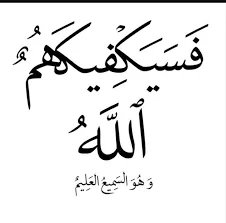 فَسَيَكْفِيكَهُمُ
ٱللَّهُ
وَهُوَ السَّمِيعُ العَلِيمُ